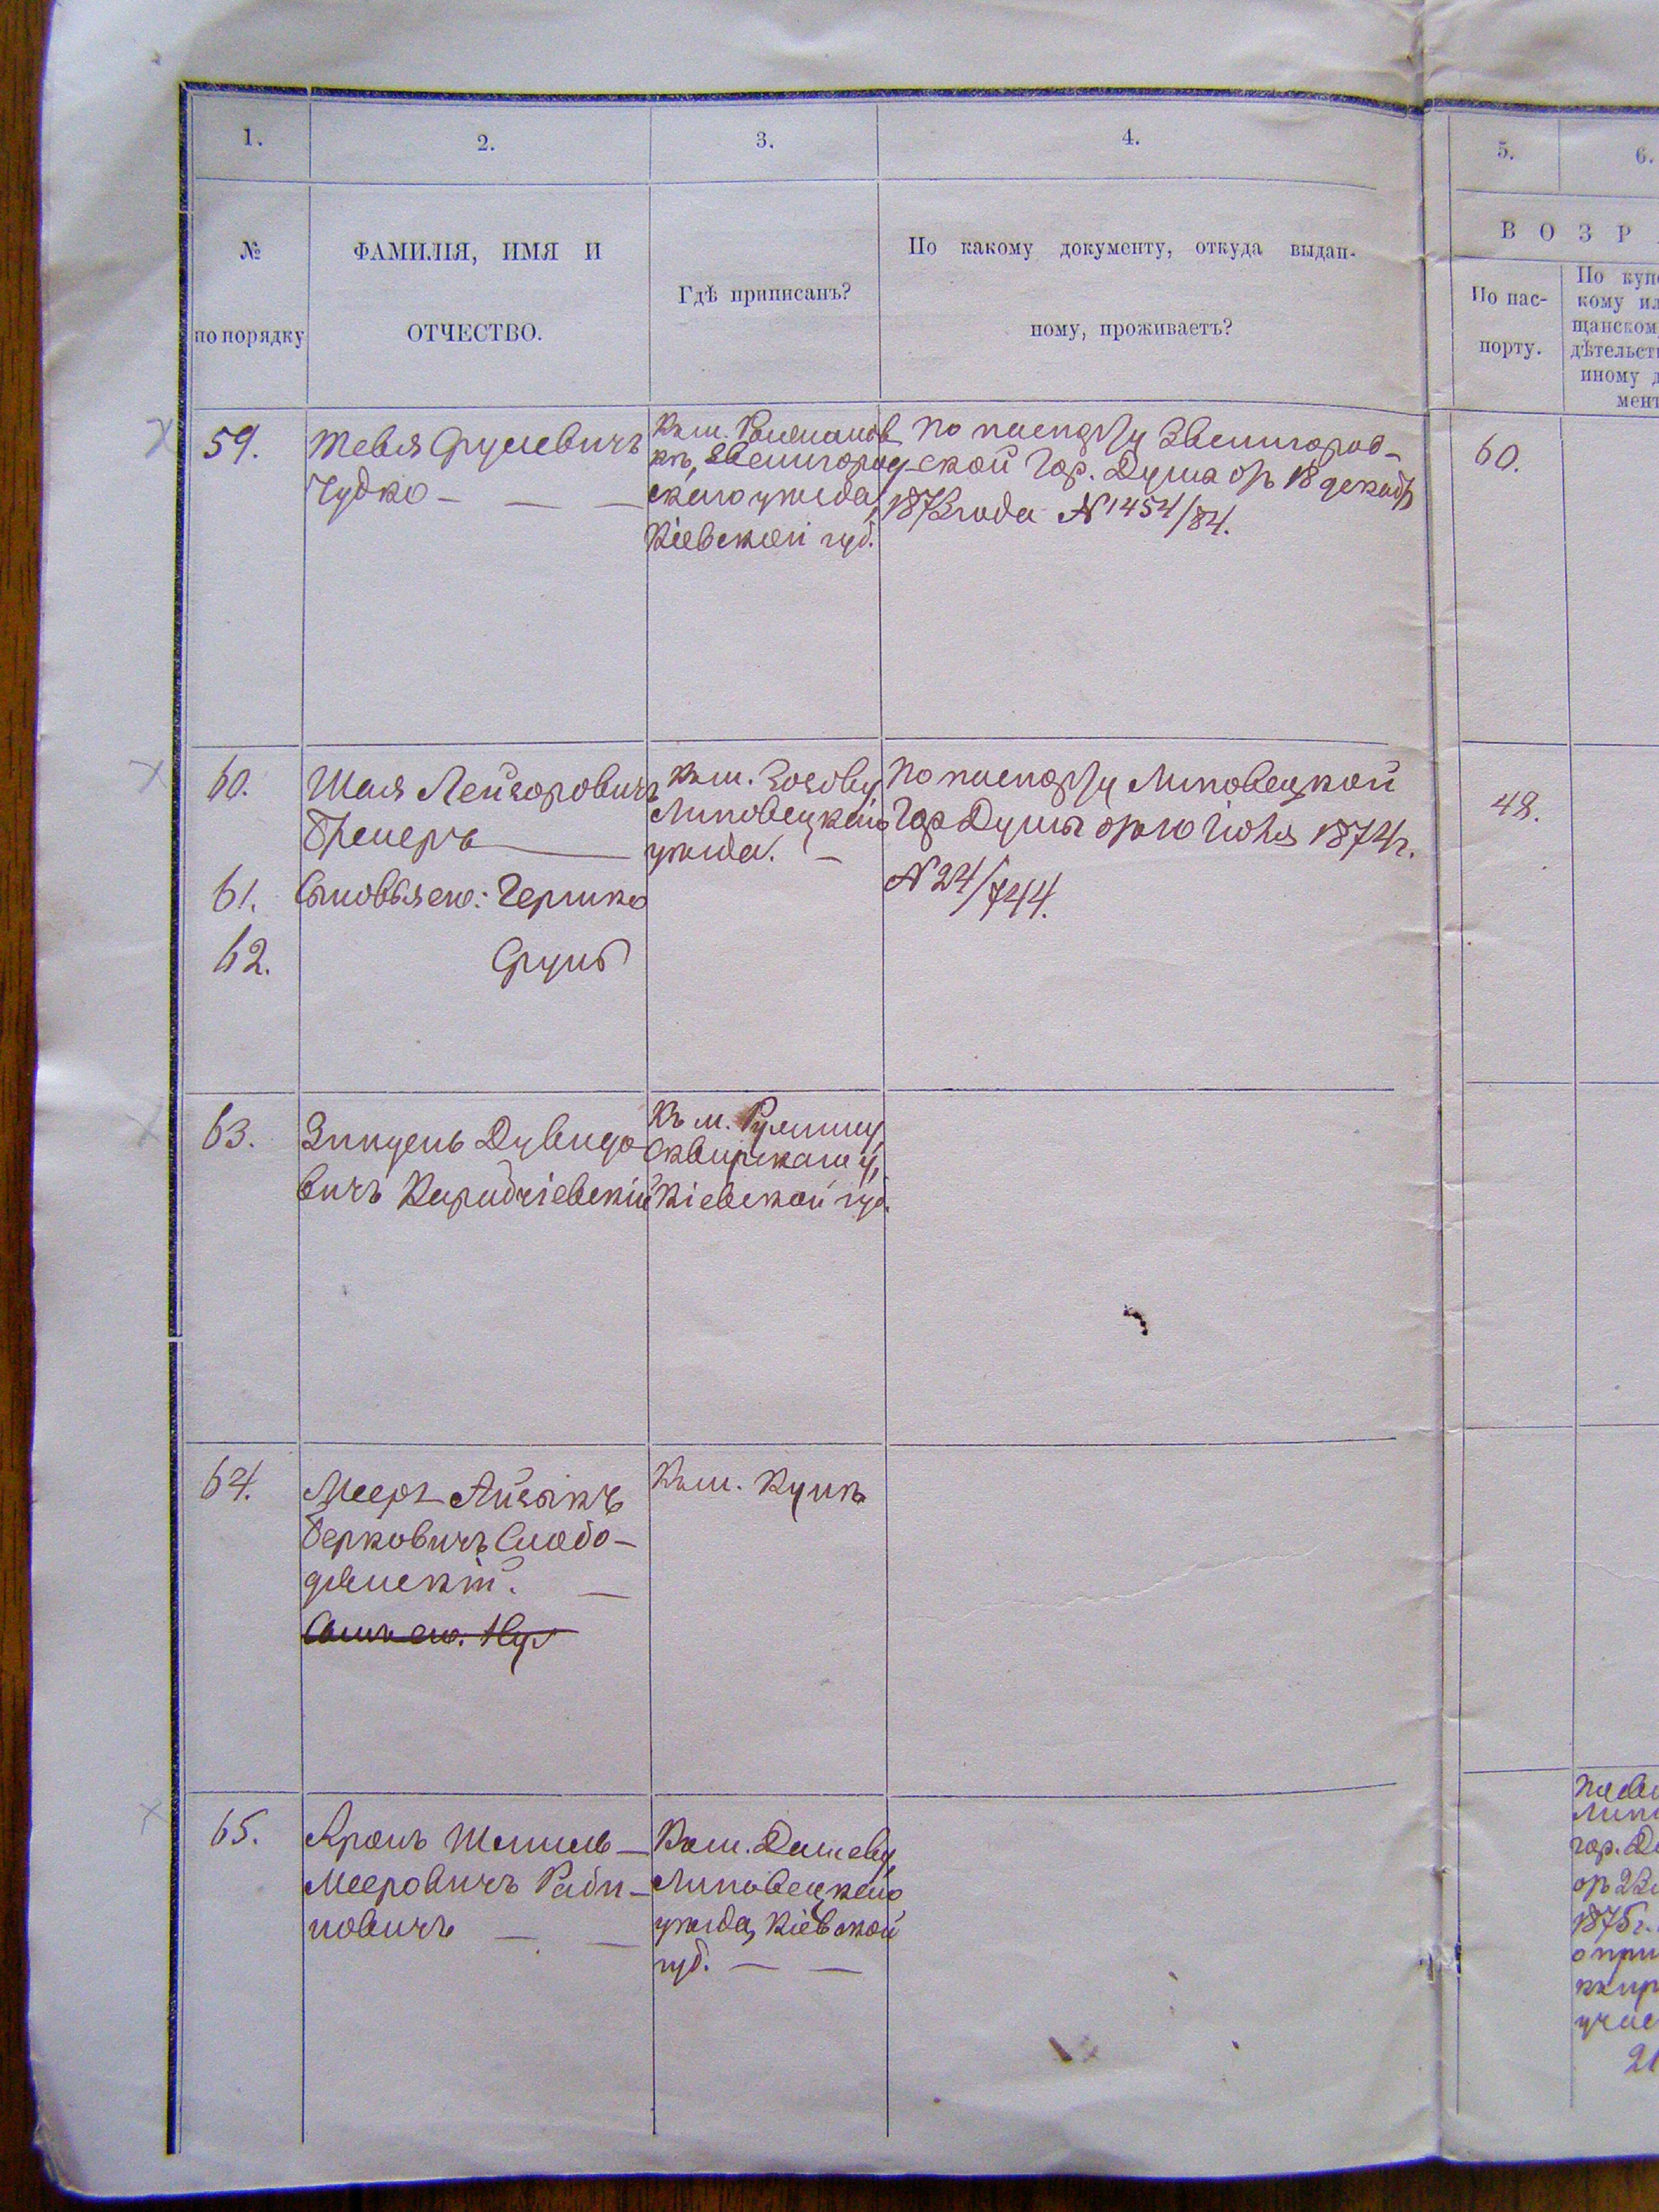 1.
2.
3.
4.
5.
6.
№
по порядку
ФАМИЛІЯ, ИМЯ И
ОТЧЕСТВО.
Гдѣ приписанъ?
По какому документу, откуда выдан-
ному, проживаетъ?
ВОЗР
По пас-
порту.
По куп
кому ил
щанском
дѣтельст
иному д
мент
59.
Тевья Срулевичъ
Чудко
Къ м.
кѣ, Звенигород-
скаго уѣзда,
Кіевской губ.
По паспорту Звенигород-
ской Гор. Думы отъ 18 декабр
1873 года № 1454/84.
60.
60.
Шая Лейзоровичъ
Къ м. Зозову
Липовецкаго
уѣзда.
По паспорту Липовецкой
Гор Думы отъ 10 Іюня 1874 г.
№ 24/744.
48.
61.
Сыновья его: Гершко
62.
Сруль
63.
Дувидо-
вичъ
Къ м. Ружину
Сквирскаго у,
Кіевской губ.
64.
Мееръ Айзыкъ
Берковичъ Слобо-
дянскій.
Сынъ его.
Къ м.
65.
Аронъ Шмиль-
Мееровичъ Раби-
новичъ
Къ м. Дашеву
Липовецкаго
уѣзда, Кіевской
губ.
гор. Д
отъ 23
1875 г.
о при
учас
21